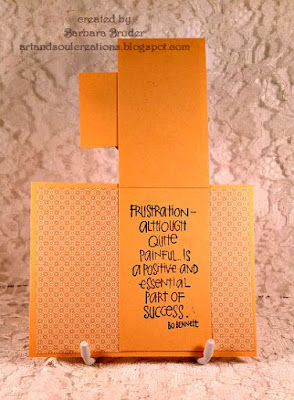 created by
Barbara Bruder
artandsoulcreations.blogspot.com
FRUSTRATION-
ALTHOUGH
QUITE
PAINFUL IS
A POSITIVE AND
ESSENTIAL
PART OF
SUCCESS.
BO BENNETT